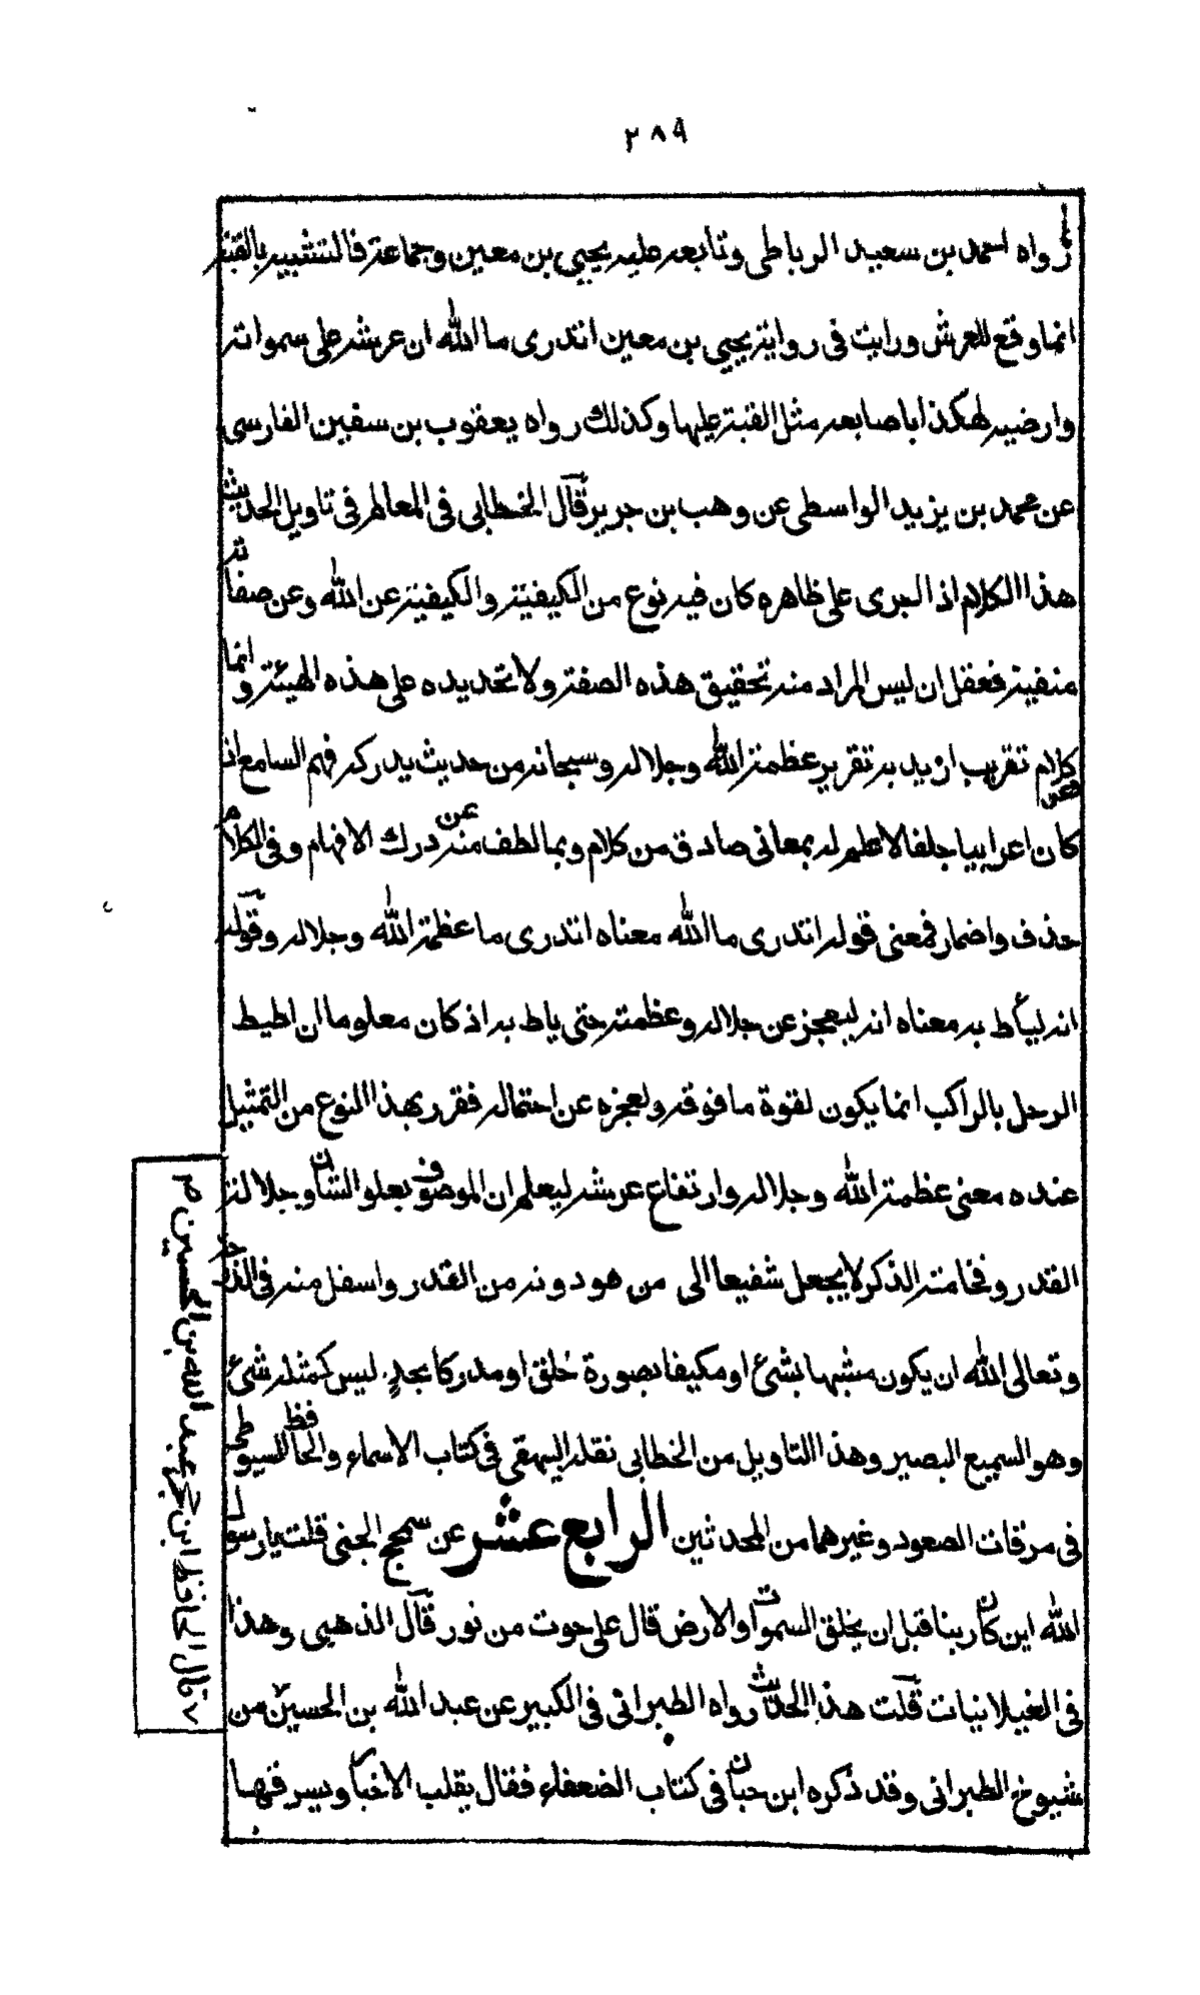 ٢٨٩
رواه احمد بن سعيد الرباطى وتابعه عليه يحيى بن معين وجماعة فالتشبيه بالقبة
انما وقع للعرش ورايت فى رواية يحيى بن معين اتدرى ما الله ان عرشه على سمواته
وارضيه لهكذا باصابعه مثل القبة عليها وكذلك رواه يعقوب بن سفين الفارسى
عن محمد بن يزيد الواسطى عن وهب بن جرير قال الخطابى فى المعالم فى تاويل الحديث
هذا الكلام اذ البرى على ظاهره كان فيه نوع من الكيفية والكيفية عن الله وعن صفاته
منفية فعقل ان ليس المراد منه تحقيق هذه الصفة ولا تحديده على هذه الهيئة وانما
كلام تقريب اريد به تقرير عظمة الله وجلاله وسبحانه من حديث يدركه فهم السامع اذ
كان اعرابيا جلفا لا علم له بمعانى صادق من كلام وبما لطف منه عن درك الافهام وفى الكلام
حذف واضمار فمعنى قوله اتدرى ما الله معناه اتدرى ما عظمة الله وجلاله وقوله
انه ليأط به معناه انه ليعجز عن جلاله وعظمته حتى ياط به اذ كان معلوما ان اطيط
الرحل بالراكب انما يكون لقوة ما فوقه ولعجزه عن احتماله فقرر بهذا النوع من التمثيل
عنده معنى عظمة الله وجلاله وارتفاع عرشه ليعلم ان الموصوف بعلو الشان وجلالة
القدر وفخامته الذكر لا يجعل شفيعا الى من هو دونه من القدر واسفل منه فى الدرجة
وتعالى الله ان يكون مشبها بشئ او مكيفا بصورة خلق او مدركا بحد ليس كمثله شئ
وهو السميع البصير وهذا التاويل من الخطابى نقله البيهقى فى كتاب الاسماء والحافظ السيوطى
فى مرقات الصعود وغيرهما من المحدثين الرابع عشر عن سمحج الجنى قلت يا رسول
الله اين كان ربنا قبل ان يخلق السموات والارض قال على حوت من نور قال الذهبى وهذا
فى الغيلانيات قلت هذا الحديث رواه الطبرانى فى الكبير عن عبد الله بن الحسين من
شيوخ الطبرانى وقد ذكره ابن حبان فى كتاب الضعفاء فقال يقلب الاخبار ويسرقها
٧ قال الحافظ ابن حجر عبد الله بن الحسين